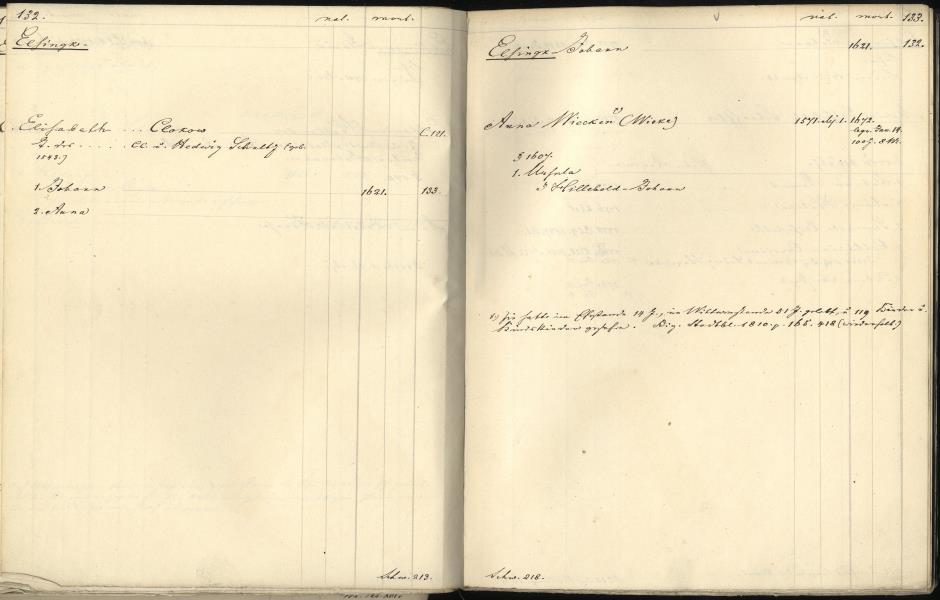 132. nat. mort.
Elsingk.
Elisabeth ... Clokow C. 121.
T. des ..... Cl. u. Hedwig Schultz (geb.
1543.)
1. Johann 1621. 133.
2. Anna
Schw. 213.
nat. mort. 133.
Elsingk Johann 1621. 132.
Anna Wiecken (Wieke) 1571. Mz 1. 1672.
Jan. 14.
1607.
1. Ursula
Hillebold Johann
1) Sie hatte im Ehestande 14 J., im Wittwenstande 51 J. gelebt, u. 119 Kinder u.
Kindskinder gesehen. Stadtbl. 1810. p. 165. 418 (wiederholt)
Schw. 218.